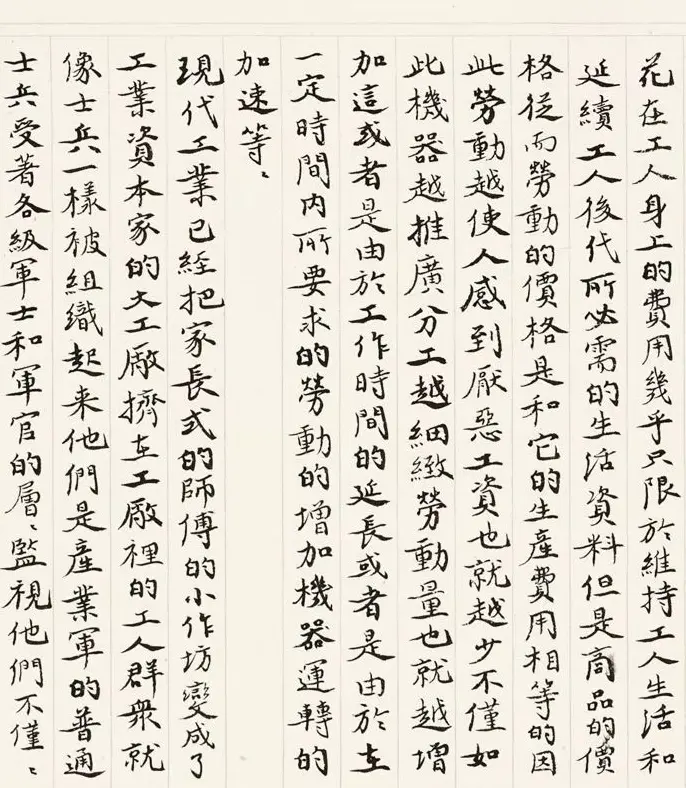 花在工人身上的費用幾乎只限於維持工人生活和
延續工人後代所必需的生活資料但是商品的價
格從而勞動的價格是和它的生產費用相等的因
此勞動越使人感到厭惡工資也就越少不僅如
此機器越推廣分工越細緻勞動量也就越增
加這或者是由於工作時間的延長或者是由於在
一定時間內所要求的勞動的增加機器運轉的
加速等、
現代工業已經把家長式的師傅的小作坊變成了
工業資本家的大工廠擠在工廠裡的工人群眾就
像士兵一樣被組織起来他們是產業軍的普通
士兵受著各級軍士和軍官的層、監視他們不僅、